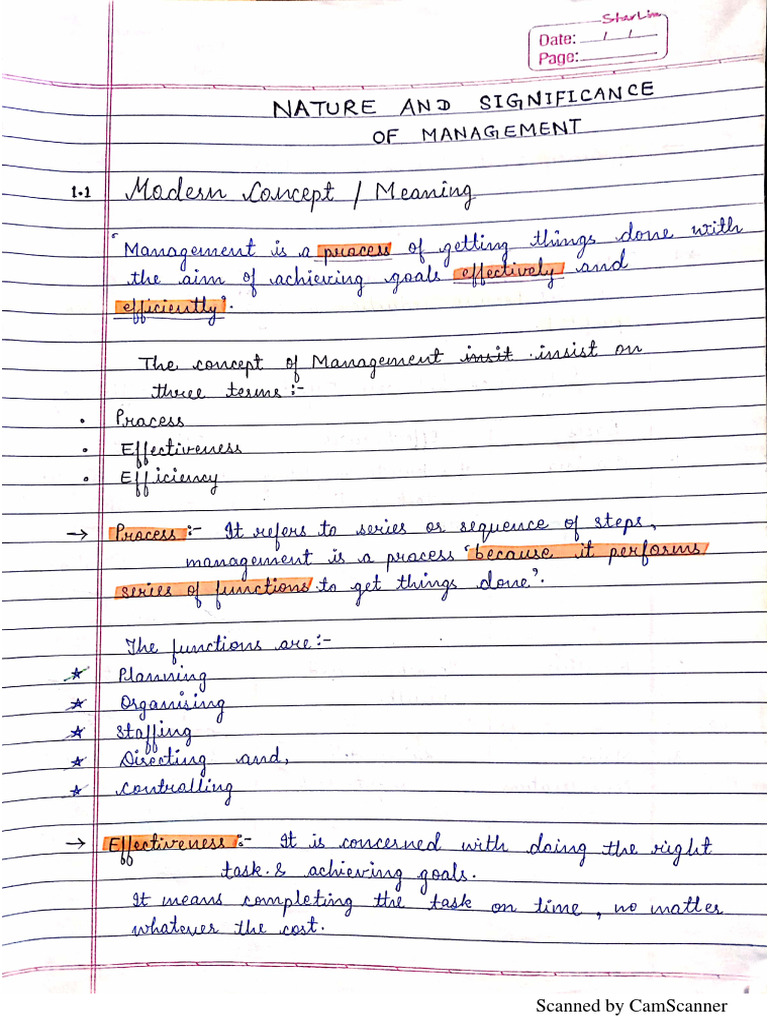 SharLin
Date: / /
Page:
NATURE AND SIGNIFICANCE
OF MANAGEMENT
1.1 Modern Concept / Meaning
"Management is a process of getting things done with
the aim of achieving goals effectively and
efficiently".
The concept of Management insit insist on
three terms :-
• Process
• Effectiveness
• Efficiency
→ Process :- It refers to series or sequence of steps,
management is a process "because it performs
series of functions to get things done".
The functions are :-
☆ Planning
☆ Organising
☆ Staffing
☆ Directing and,
☆ Controlling
→ Effectiveness :- It is concerned with doing the right
task & achieving goals.
It means completing the task on time, no matter
whatever the cost.
Scanned by CamScanner